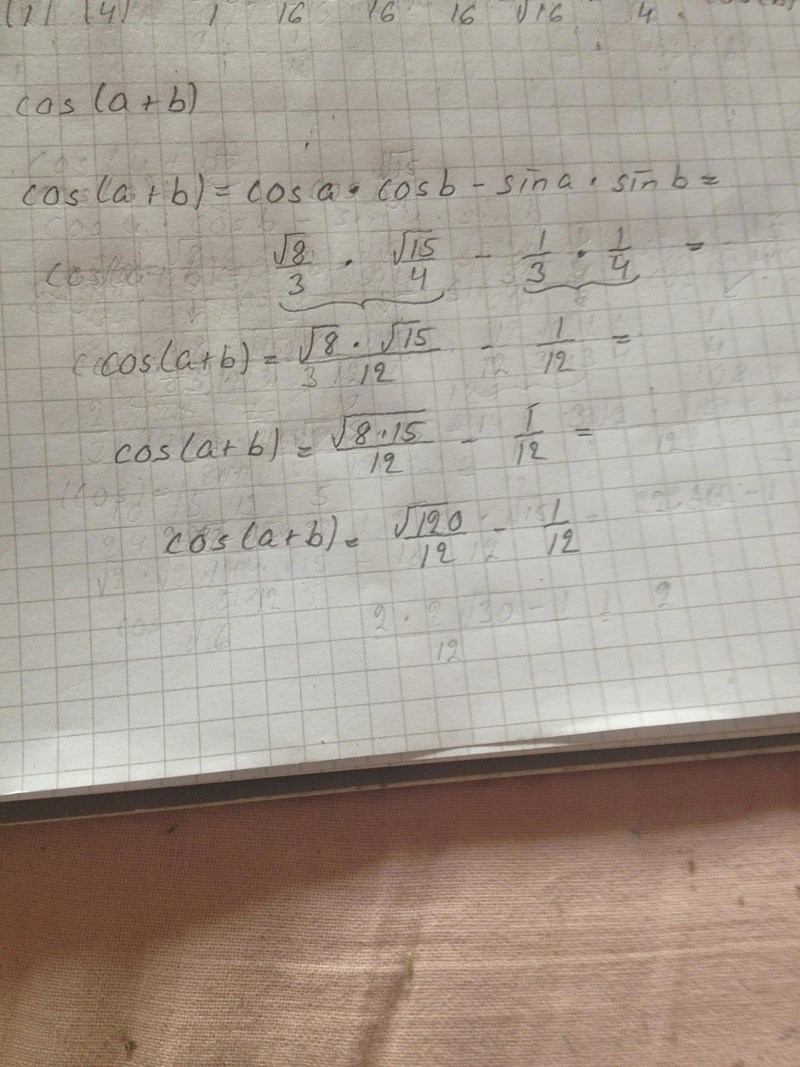 1 16 16 16 √16 4
cos(a+b)
cos(a+b) = cos a • cos b - sin a • sin b =
√8/3 • √15/4 - 1/3 • 1/4 =
cos(a+b) = √8 • √15/12 - 1/12 =
cos(a+b) = √8•15/12 - 1/12 =
cos(a+b) = √120/12 - 1/12